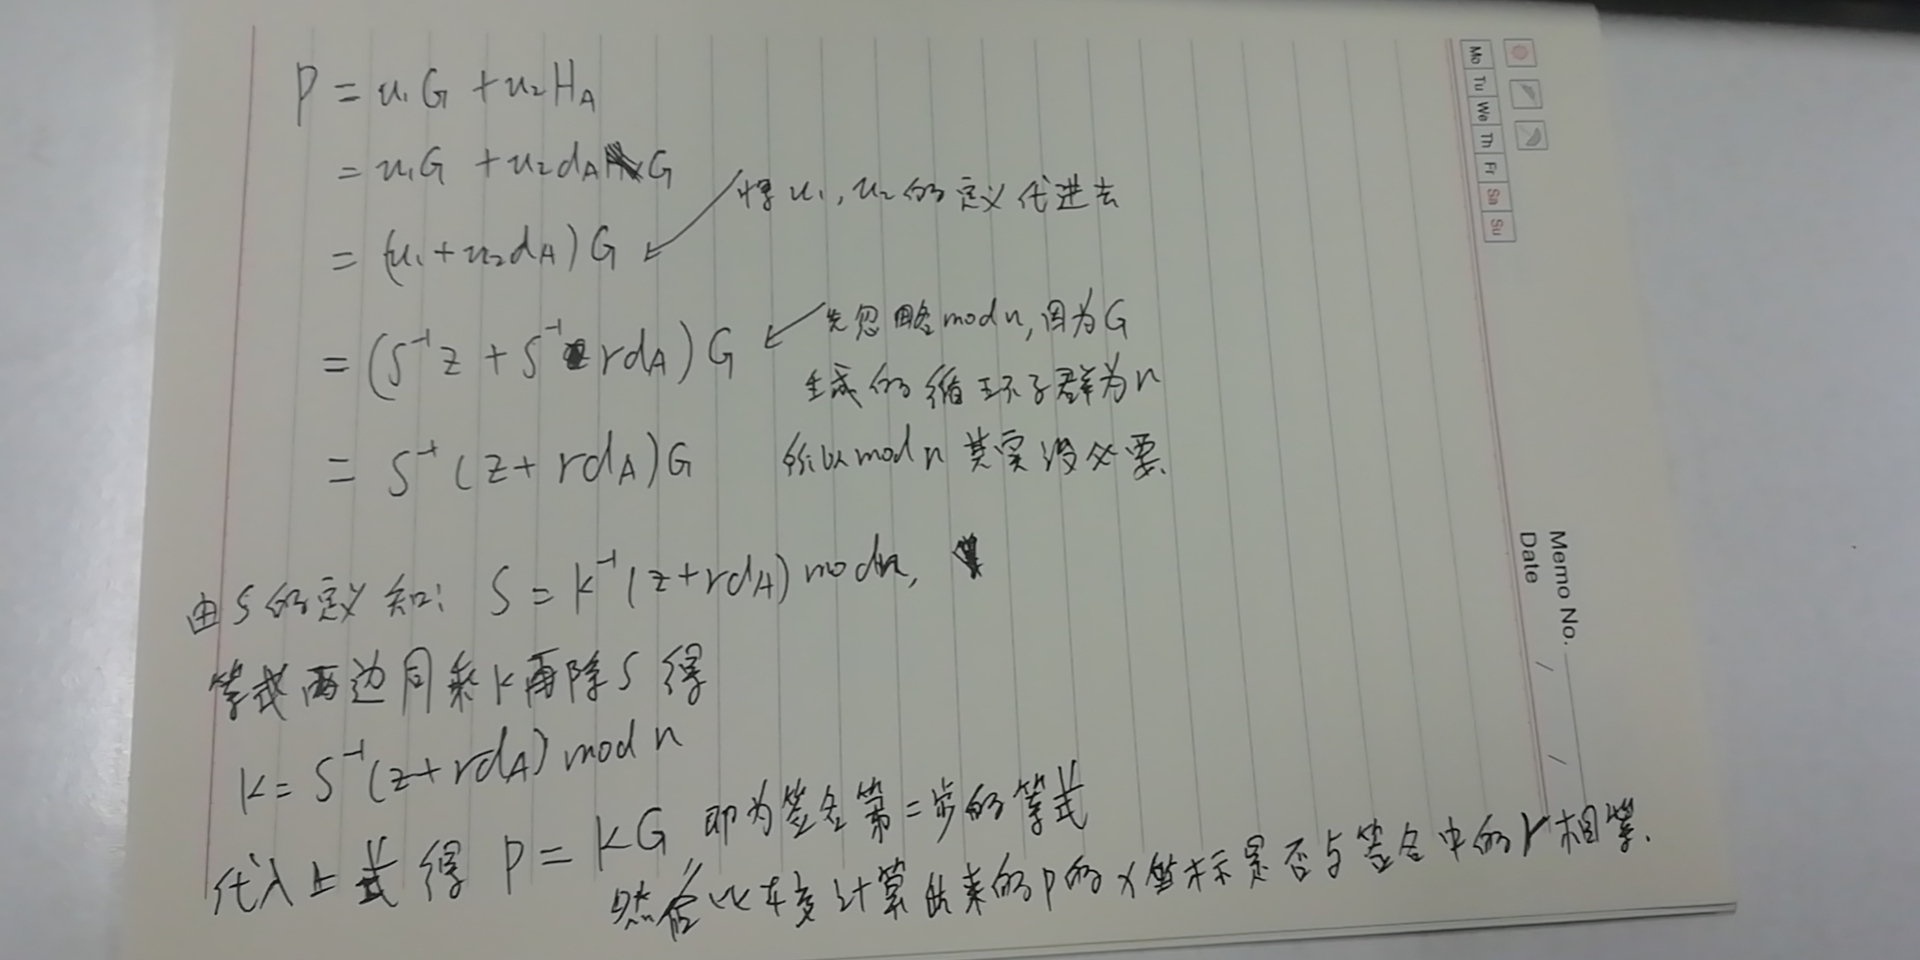 P = u₁G + u₂H_A
= u₁G + u₂d_A G
将u₁,u₂的定义代进去
= (u₁+u₂d_A)G
= (S⁻¹z + S⁻¹rd_A)G
先忽略mod n,因为G
生成的循环子群为n
所以mod n 其实没必要.
= S⁻¹(z+rd_A)G
由S的定义知: S = k⁻¹(z+rd_A) mod n,
等式两边同乘k再除S得
k = S⁻¹(z+rd_A) mod n
代入上式得 P = kG, 即为签名第二步的等式
然后比较计算出来的P的x坐标是否与签名中的r相等.
Mo Tu We Th Fr Sa Su
Memo No.
Date / /